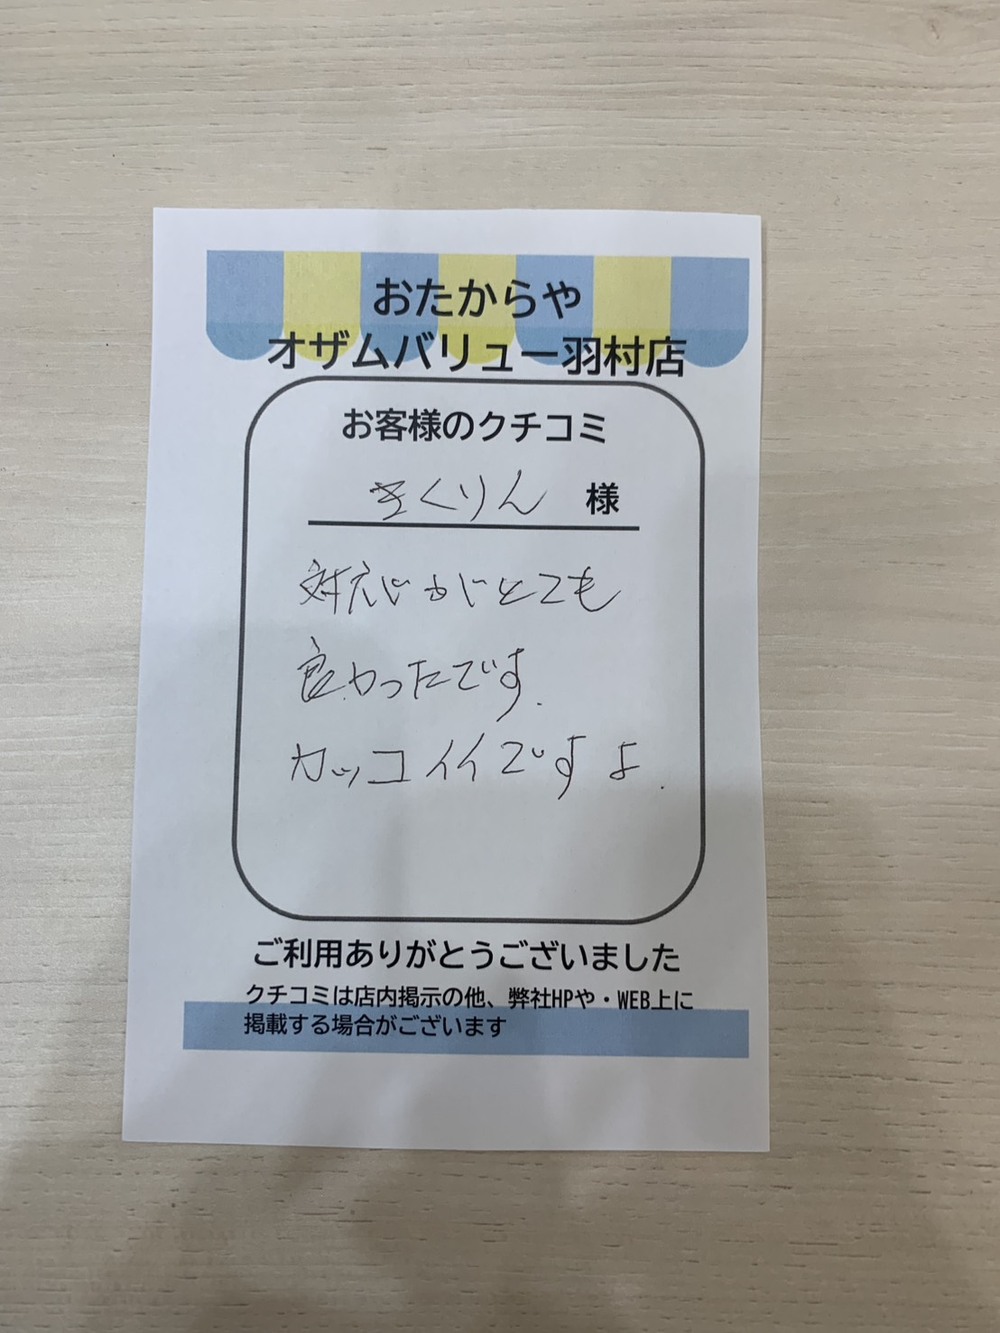 おたからや
オザムバリュー羽村店
お客様のクチコミ
きくりん 様
対応がとても
良かったです.
カッコイイですよ.
ご利用ありがとうございました
クチコミは店内掲示の他、弊社HPや・WEB上に
掲載する場合がございます